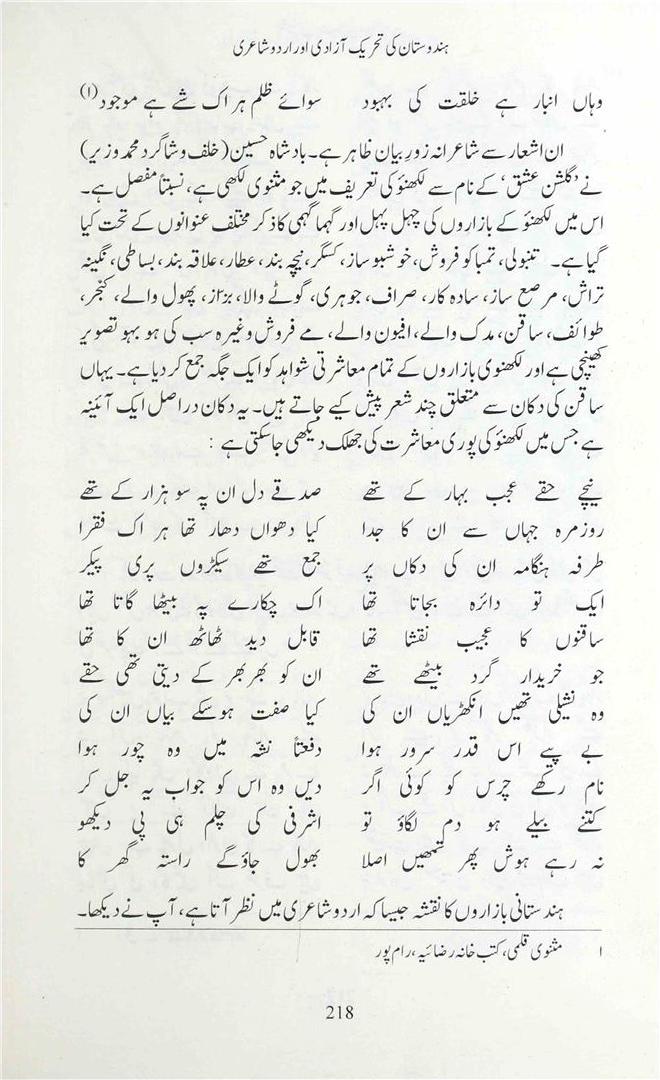 ہندوستان کی تحریک آزادی اور اردو شاعری
وہاں انبار ہے خلقت کی بہبود سوائے ظلم ہر اک شے ہے موجود(۱)
ان اشعار سے شاعرانہ زورِ بیان ظاہر ہے۔ بادشاہ حسین (خلف و شاگرد محمد وزیر)
نے ’گلشن عشق‘ کے نام سے لکھنؤ کی تعریف میں جو مثنوی لکھی ہے، نسبتاً مفصل ہے۔
اس میں لکھنؤ کے بازاروں کی چہل پہل اور گہما گہمی کا ذکر مختلف عنوانوں کے تحت کیا
گیا ہے۔ تنبولی، تمباکو فروش، خوشبو ساز، کسگر، نیچہ بند، عطار، علاقہ بند، بساطی، نگینہ
تراش، مرصع ساز، سادہ کار، صراف، جوہری، گوٹے والا، بزاز، پھول والے، کنجر،
طوائف، ساقن، مدک والے، افیون والے، مے فروش وغیرہ سب کی ہو بہو تصویر
کھینچی ہے اور لکھنوی بازاروں کے تمام معاشرتی شواہد کو ایک جگہ جمع کر دیا ہے۔ یہاں
ساقن کی دکان سے متعلق چند شعر پیش کیے جاتے ہیں۔ یہ دکان دراصل ایک آئینہ
ہے جس میں لکھنؤ کی پوری معاشرت کی جھلک دیکھی جاسکتی ہے :
نیچے حقے عجب بہار کے تھے صدقے دل ان پہ سو ہزار کے تھے
روزمرہ جہاں سے ان کا جدا کیا دھواں دھار تھا ہر اک فقرا
طرفہ ہنگامہ ان کی دکاں پر جمع تھے سیکڑوں پری پیکر
ایک تو دائرہ بجاتا تھا اک چکارے پہ بیٹھا گاتا تھا
ساقنوں کا عجیب نقشا تھا قابل دید ٹھاٹھ ان کا تھا
جو خریدار گرد بیٹھے تھے ان کو بھر بھر کے دیتی تھی حقے
وہ نشیلی تھیں انکھڑیاں ان کی کیا صفت ہوسکے بیاں ان کی
بے پیے اس قدر سرور ہوا دفعتاً نشّہ میں وہ چور ہوا
نام رکھے چرس کو کوئی اگر دیں وہ اس کو جواب یہ جل کر
کتنے بیلے ہو دم لگاؤ تو اشرفی کی چلم ہی پی دیکھو
نہ رہے ہوش پھر تمھیں اصلا بھول جاؤگے راستہ گھر کا
ہندستانی بازاروں کا نقشہ جیسا کہ اردو شاعری میں نظر آتا ہے، آپ نے دیکھا۔
۱ مثنوی قلمی، کتب خانہ رضائیہ، رام پور
218